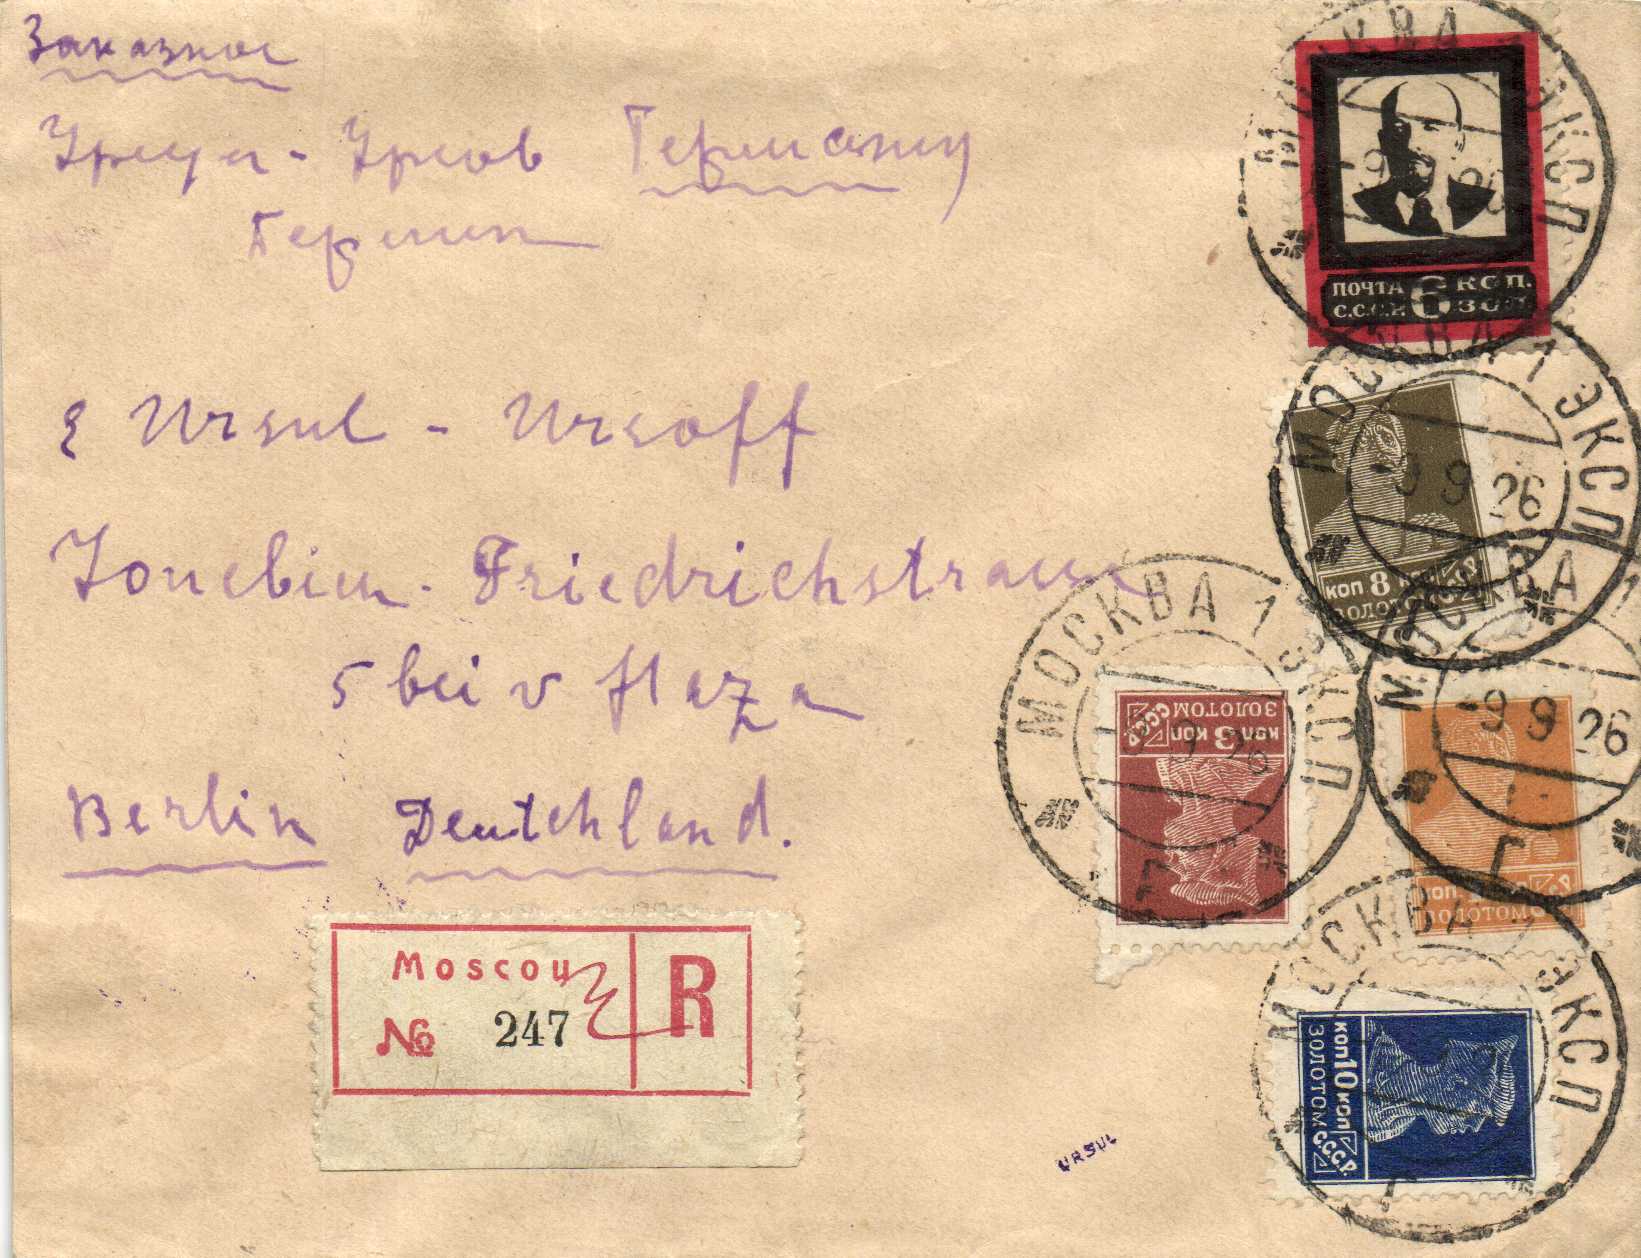 Заказное
Урсул - Урсов Германия
Берлин
E Ursul - Ursoff
Friedrichstrasse
5 bei v
Berlin Deutchland.
Moscou
№ 247
R
URSUL
ПОЧТА 6 КОП.
С.С.С.Р. ЗОЛ.
МОСКВА 1 ЭКСП
-9 9 26
КОП 8 КОП
ЗОЛОТОМ СССР
МОСКВА 1 ЭКСП
-9 9 26
Г
КОП 3 КОП
ЗОЛОТОМ СССР
МОСКВА 1 ЭКСП
-9 9 26
КОП КОП
ЗОЛОТОМ СССР
МОСКВА 1
-9 9 26
Г
КОП 10 КОП
ЗОЛОТОМ С.С.С.Р.
МОСКВА 1 ЭКСП
Г